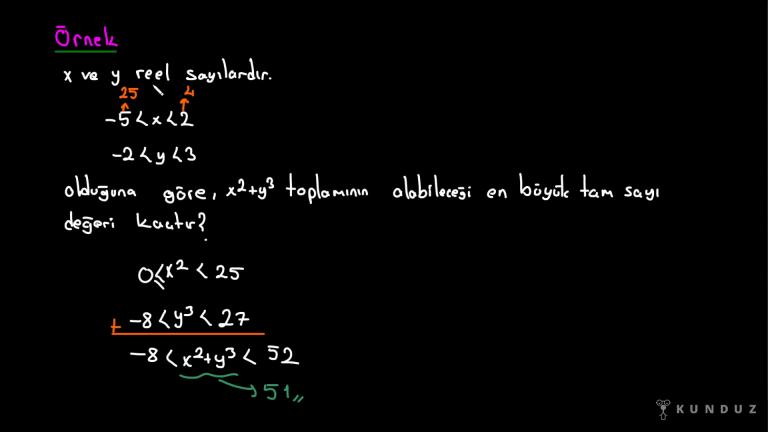 Örnek
x ve y reel sayılardır.
25 4
-5<x<2
-2<y<3
olduğuna göre, x²+y³ toplamının alabileceği en büyük tam sayı
değeri kaçtır?
0≤x²<25
+ -8<y³<27
-8<x²+y³<52
51,,
KUNDUZ